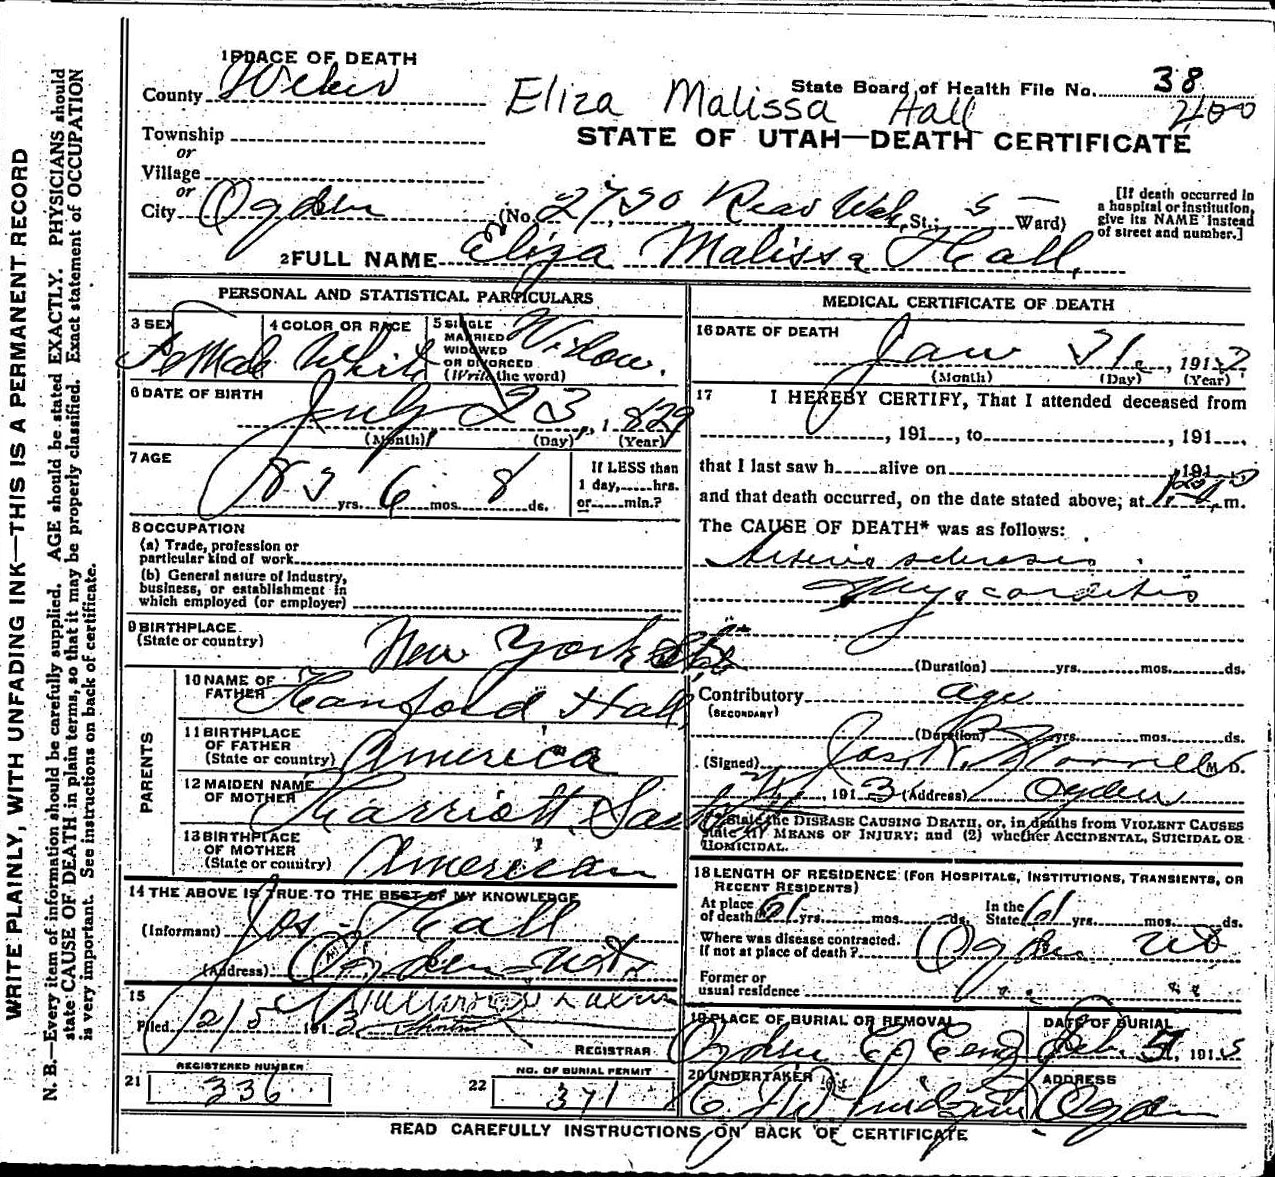 WRITE PLAINLY, WITH UNFADING INK—THIS IS A PERMANENT RECORD
N. B.—Every item of information should be carefully supplied. AGE should be stated EXACTLY. PHYSICIANS should
state CAUSE OF DEATH in plain terms, so that it may be properly classified. Exact statement of OCCUPATION
is very important. See instructions on back of certificate.
1 PLACE OF DEATH
County Weber
Eliza Malissa Hall
State Board of Health File No. 38
400
Township
or
Village
or
STATE OF UTAH—DEATH CERTIFICATE
City Ogden (No. 2730 St.; 5 Ward)
[If death occurred in
a hospital or institution,
give its NAME instead
of street and number.]
2 FULL NAME Eliza Malissa Hall
PERSONAL AND STATISTICAL PARTICULARS
3 SEX Female
4 COLOR OR RACE White
5 SINGLE
MARRIED
WIDOWED
OR DIVORCED
(Write the word)
Widow.
6 DATE OF BIRTH
July 23, 1829
(Month) (Day) (Year)
7 AGE
83 yrs. 6 mos. 8 ds.
If LESS than
1 day, hrs.
or min.?
8 OCCUPATION
(a) Trade, profession or
particular kind of work
(b) General nature of Industry,
business, or establishment in
which employed (or employer)
9 BIRTHPLACE
(State or country)
New York State
PARENTS
10 NAME OF
FATHER Hanford Hall
11 BIRTHPLACE
OF FATHER
(State or country) America
12 MAIDEN NAME
OF MOTHER Harriott
13 BIRTHPLACE
OF MOTHER
(State or country) American
14 THE ABOVE IS TRUE TO THE BEST OF MY KNOWLEDGE
(Informant) Jos. Hall
(Address) Ogden Utah
15
Filed 2/5 1913
REGISTRAR
21 REGISTERED NUMBER
336
22 NO. OF BURIAL PERMIT
371
MEDICAL CERTIFICATE OF DEATH
16 DATE OF DEATH
Jan 31, 1913
(Month) (Day) (Year)
17 I HEREBY CERTIFY, That I attended deceased from
, 191 , to , 191 .
that I last saw h alive on 191
and that death occurred, on the date stated above, at m.
The CAUSE OF DEATH* was as follows:
Arterio sclerosis
Myocarditis
(Duration) yrs. mos. ds.
Contributory age
(SECONDARY)
(Duration) yrs. mos. ds.
(Signed) M. D.
, 1913 (Address) Ogden
*State the DISEASE CAUSING DEATH, or, in deaths from VIOLENT CAUSES
state (1) MEANS OF INJURY; and (2) whether ACCIDENTAL, SUICIDAL OR
HOMICIDAL.
18 LENGTH OF RESIDENCE (FOR HOSPITALS, INSTITUTIONS, TRANSIENTS, OR
RECENT RESIDENTS)
At place
of death 61 yrs. mos. ds.
In the
State 61 yrs. mos. ds.
Where was disease contracted.
If not at place of death? Ogden Ut
Former or
usual residence " "
19 PLACE OF BURIAL OR REMOVAL
Ogden
DATE OF BURIAL
Feb 191
20 UNDERTAKER
ADDRESS
Ogden
READ CAREFULLY INSTRUCTIONS ON BACK OF CERTIFICATE